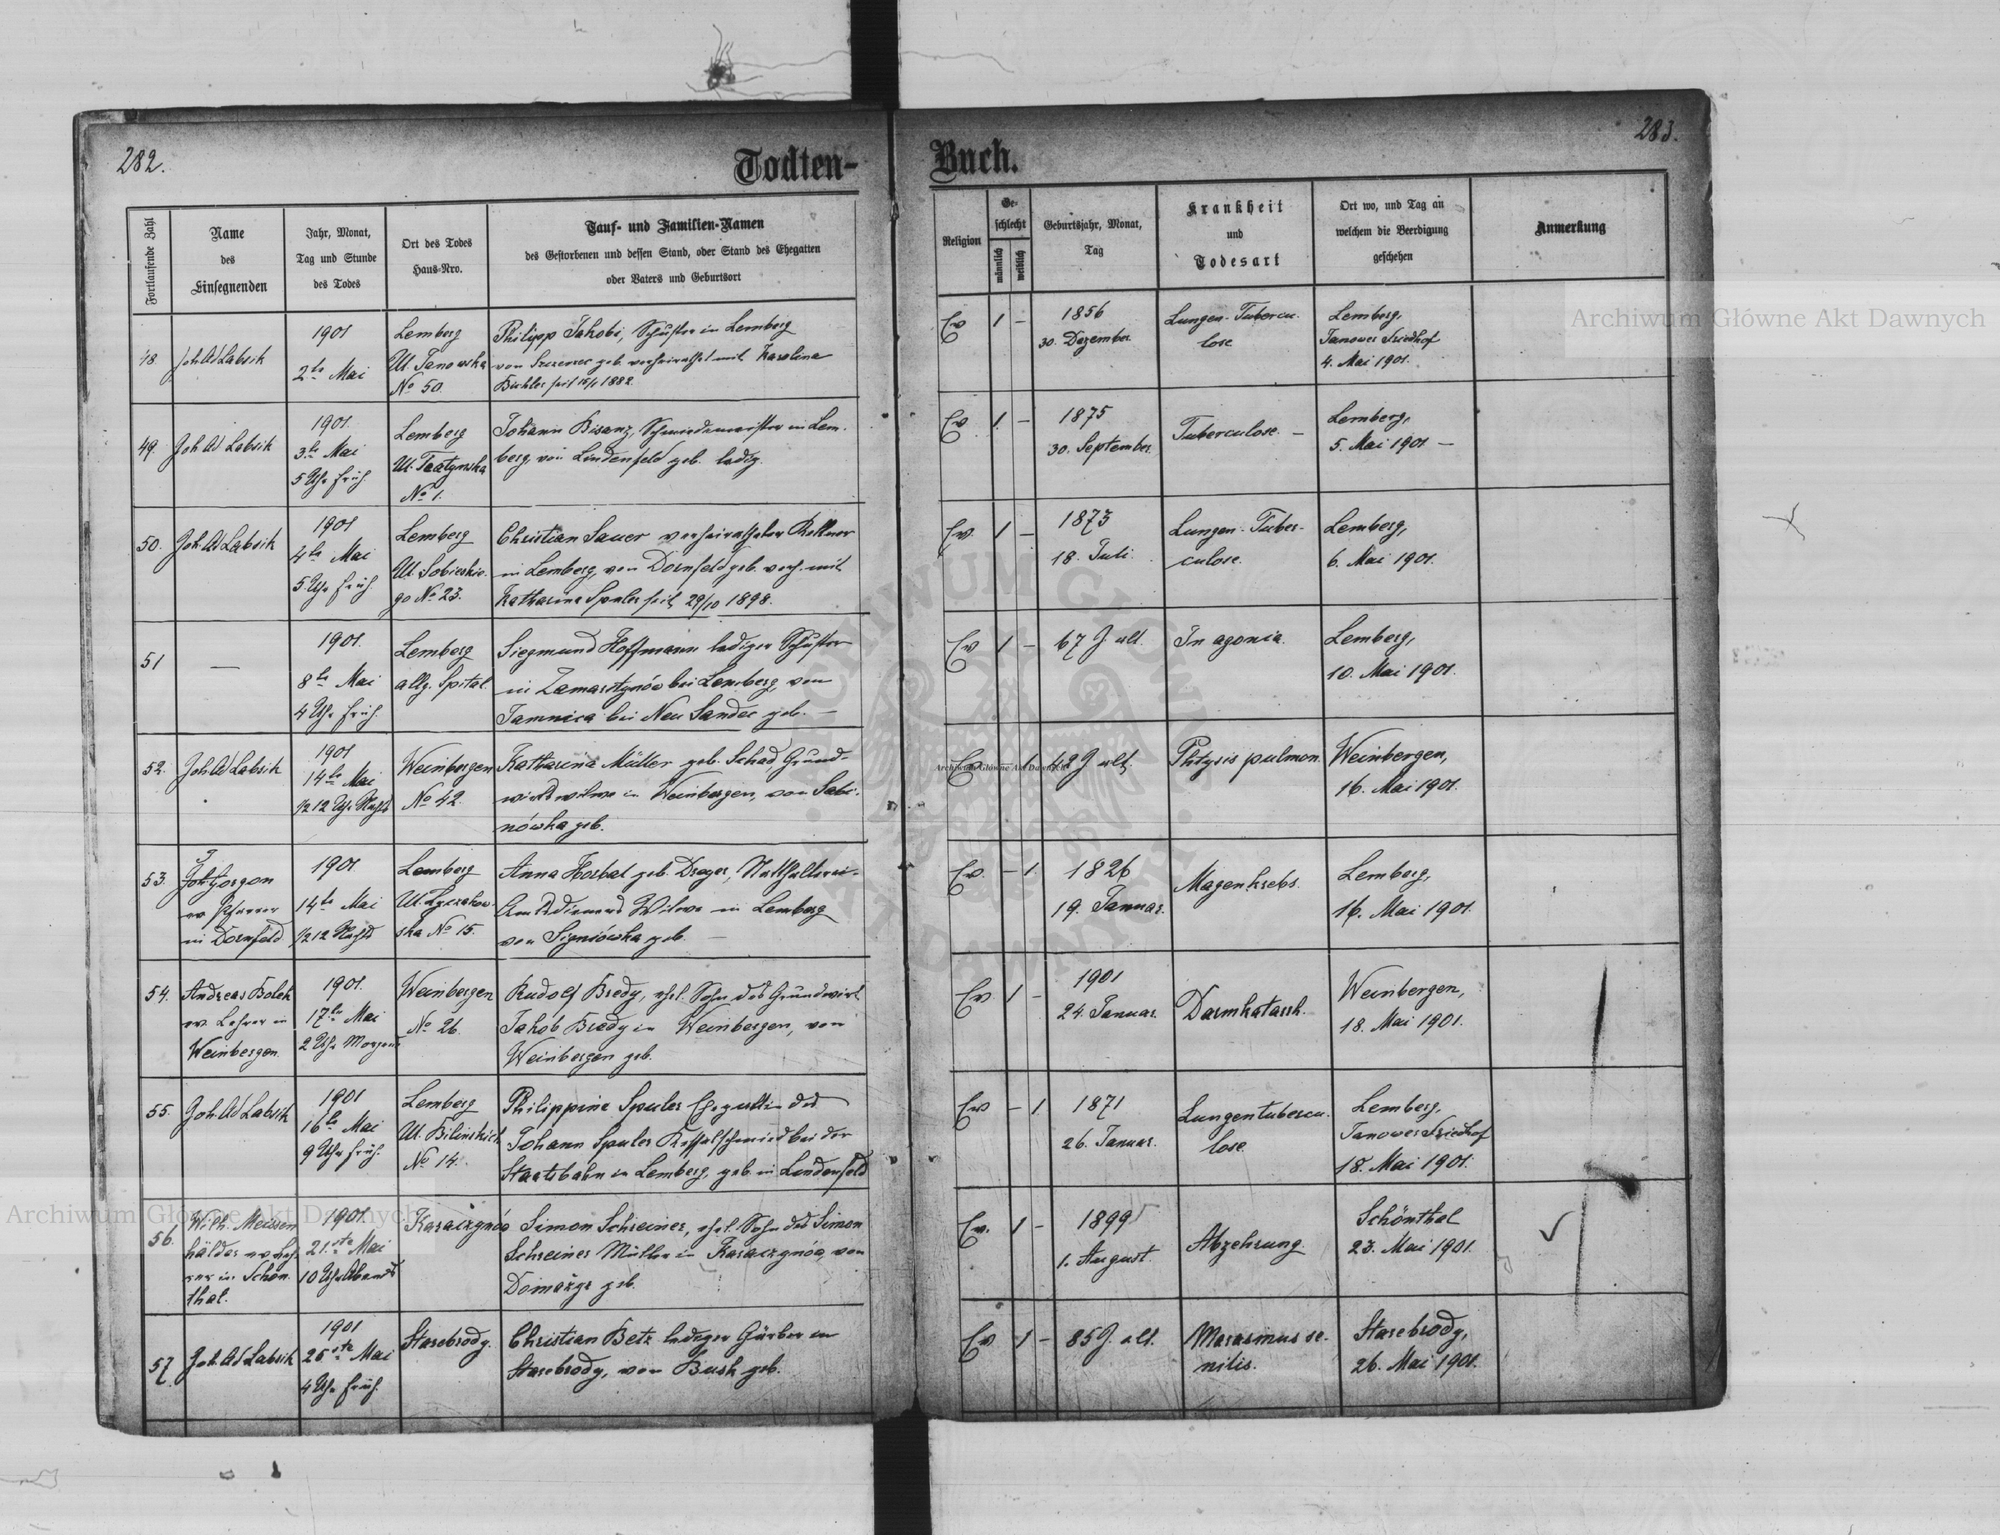 282.
283.
Todten-
Buch.
Fortlaufende Zahl
Name
des
Einsegnenden
Jahr, Monat,
Tag und Stunde
des Todes
Ort des Todes
Haus-Nro.
Tauf- und Familien-Namen
des Gestorbenen und dessen Stand, oder Stand des Ehegatten
oder Vaters und Geburtsort
Religion
Ge-
schlecht
männlich
weiblich
Geburtsjahr, Monat,
Tag
Krankheit
und
Todesart
Ort wo, und Tag an
welchem die Beerdigung
geschehen
Anmerkung
48.
Joh. Ad Labsik
1901
2te Mai
Lemberg
Ul. Janowska
No 50.
Philipp Jakobi, Schuster in Lemberg
von geb. verheirathet mit Karolina
seit 1882.
Ev
1
–
1856
30. Dezember.
Lungen-Tubercu-
lose
Lemberg,
Janower Friedhof
4. Mai 1901.
49.
Joh Ad Labsik
1901.
3te Mai
5 Uhr früh.
Lemberg
Ul.
No 1.
Johann Bisanz, Schmiedemeister in Lem-
berg, von Lindenfeld geb. ledig.
Ev.
1.
–
1875
30. September.
Tuberculose. –
Lemberg,
5. Mai 1901 –
50.
Joh. Ad Labsik
1901
4te Mai
5 Uhr früh.
Lemberg
Ul. Sobieskie-
go No 23.
Christian Sauer verheiratheter Kellner
in Lemberg, von Dornfeld geb. verh. mit
Katharina Spuler seit 29/10 1898.
Ev.
1
–
1873
18. Juli.
Lungen-Tuber-
culose.
Lemberg,
6. Mai 1901.
51
—
1901.
8te Mai
4 Uhr früh.
Lemberg
allg. Spital.
Siegmund Hoffmann lediger Schuster
in Zamarstynów bei Lemberg, von
Jamnica bei Neu Sandec geb. –
Ev
1
–
67 J alt.
In agonia.
Lemberg,
10. Mai 1901.
52.
Joh Ad Labsik
1901
14te Mai
1/2 12 Uhr Nachts
Weinbergen
No 42.
Katharina Müller geb. Schad, Grund-
wirtswitwe in Weinbergen, von Sabi-
nówka geb.
Ev
–
1.
J alt,
Phtysis pulmon.
Weinbergen,
16. Mai 1901.
53.
Joh. Gorgon
ev Pfarrer
in Dornfeld
1901
14te Mai
1/2 12 Nachts
Lemberg
Ul Lyczakow-
ska No 15.
Anna Horbal geb. Dreyer, Statthalterei-
Amtsdieners Witwe in Lemberg
von Signiówka geb. –
Ev.
–
1.
1826
19. Januar.
Magenkrebs.
Lemberg,
16. Mai 1901.
54.
Andreas Bolek
ev. Lehrer in
Weinbergen.
1901.
17te Mai
2 Uhr Morgens
Weinbergen
No 26.
Rudolf Bredy, ehel. Sohn des Grundwirt
Jakob Bredy in Weinbergen, von
Weinbergen geb.
Ev
1
–
1901
24. Januar.
Darmkatarrh.
Weinbergen,
18. Mai 1901.
55.
Joh. Ad Labsik
1901
16te Mai
9 Uhr früh.
Lemberg
Ul. Bilinskich
No 14.
Philippine Spuler Ehegattin des
Johann Spuler Kesselschmied bei der
Staatsbahn in Lemberg, geb. in Lindenfeld
Ev
–
1.
1871
26. Januar.
Lungentubercu-
lose.
Lemberg,
Janower Friedhof
18. Mai 1901.
56.
Wilh. Meissen
hälder ev Leh-
rer in Schön-
thal.
1901.
21.ste Mai
10 Uhr Abends
Karaczynów
Simon Schreiner, ehel. Sohn des Simon
Schreiner Müller in Karaczynów, von
Domażyr geb.
Ev.
1
–
1899
1. August.
Abzehrung.
Schönthal
23. Mai 1901.
57.
Joh. Ad Labsik
1901
25ste Mai
4 Uhr früh.
Starebrody.
Christian Betz lediger Gärber in
Starebrody, von Busk geb.
Ev
1
–
85 J. alt.
Marasmus se-
nilis.
Starebrody,
26. Mai 1901.
Archiwum Główne Akt Dawnych
Archiwum Główne Akt Dawnych
Archiwum Główne Akt Dawnych